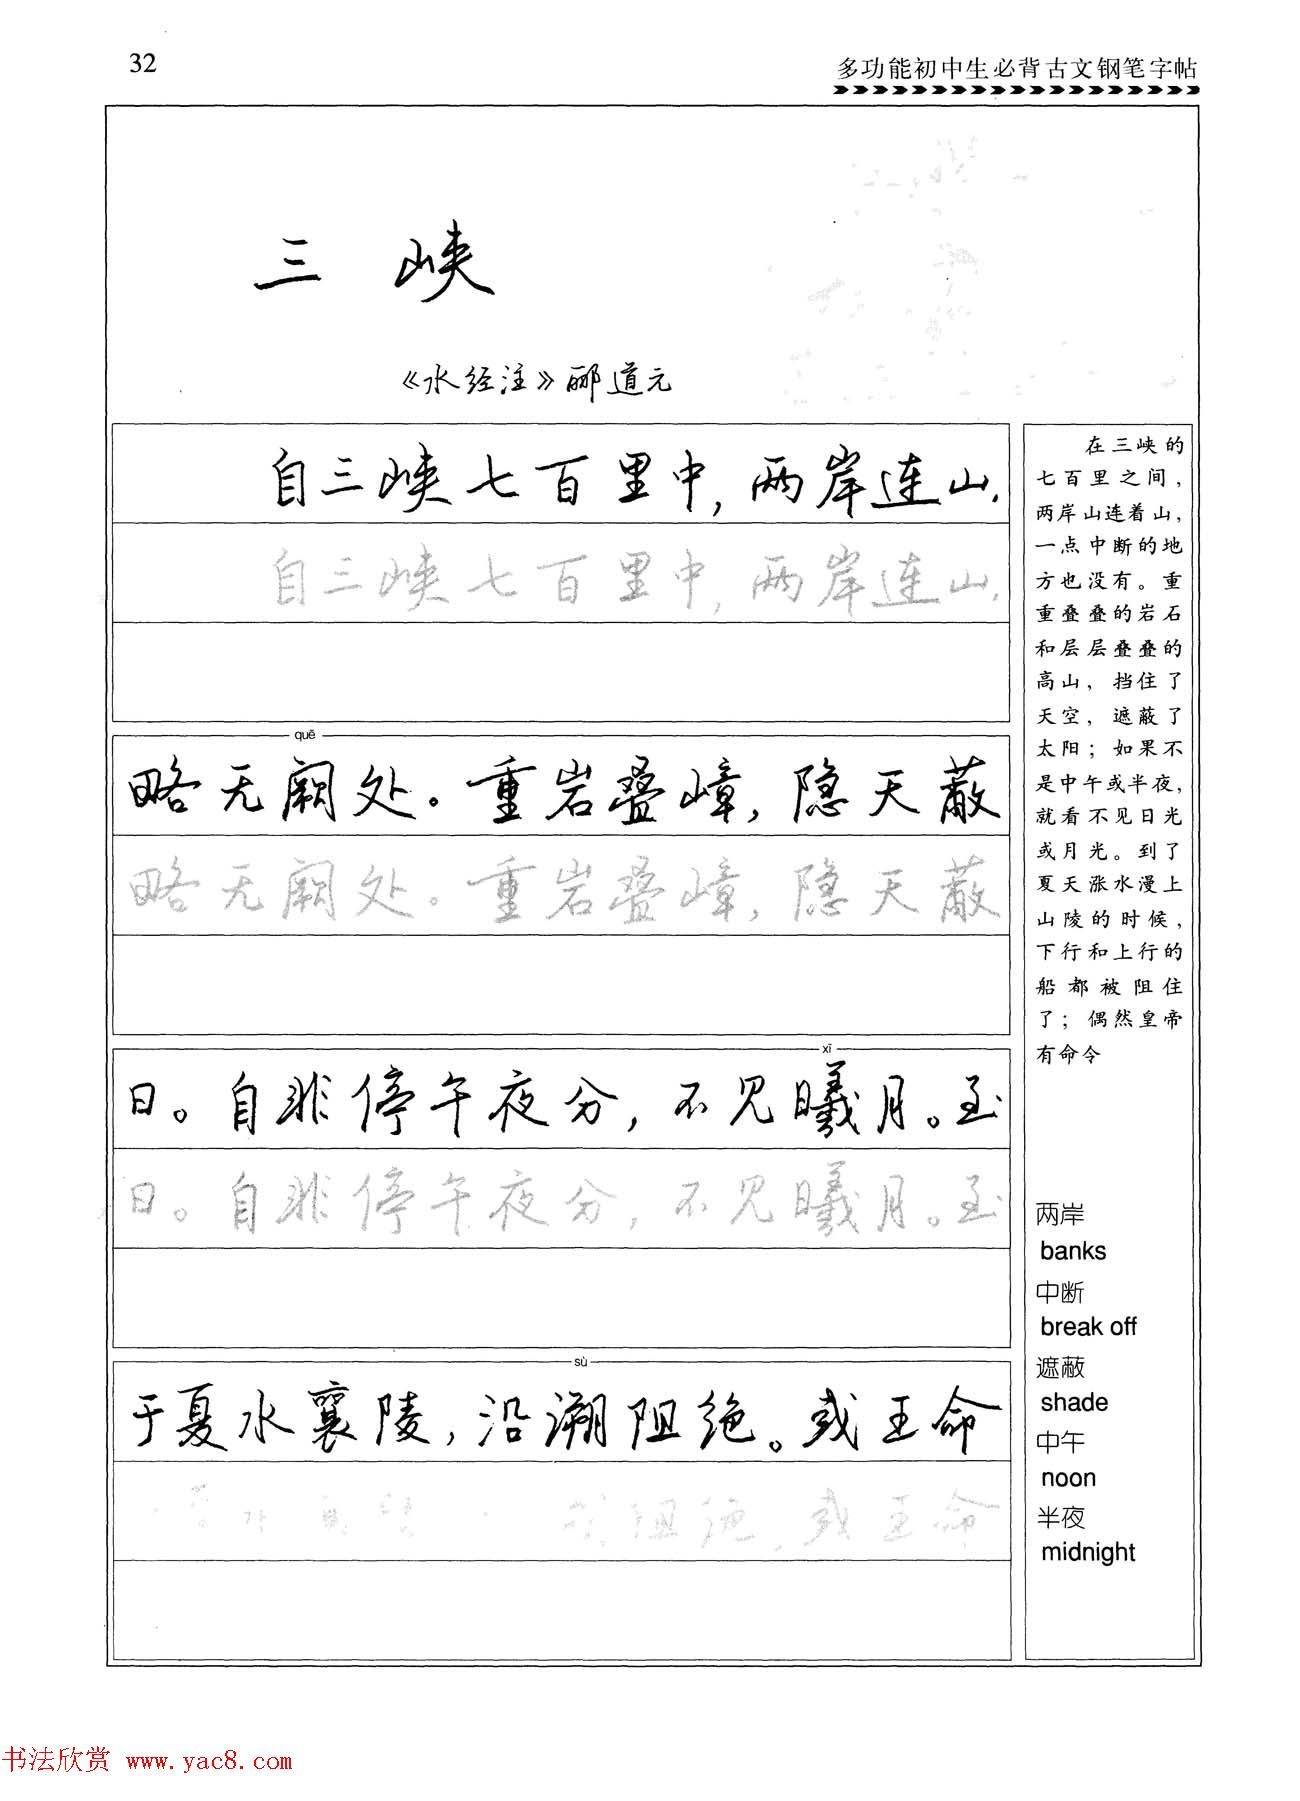 32
多功能初中生必背古文钢笔字帖
三 峡
《水经注》郦道元
自三峡七百里中，两岸连山，
自三峡七百里中，两岸连山，
quē
略无阙处。重岩叠嶂，隐天蔽
略无阙处。重岩叠嶂，隐天蔽
xī
日。自非停午夜分，不见曦月。至
日。自非停午夜分，不见曦月。至
sù
于夏水襄陵，沿溯阻绝。或王命
阻绝，或王命
在三峡的
七百里之间，
两岸山连着山，
一点中断的地
方也没有。重
重叠叠的岩石
和层层叠叠的
高山，挡住了
天空，遮蔽了
太阳；如果不
是中午或半夜，
就看不见日光
或月光。到了
夏天涨水漫上
山陵的时候，
下行和上行的
船都被阻住
了；偶然皇帝
有命令
两岸
banks
中断
break off
遮蔽
shade
中午
noon
半夜
midnight
书法欣赏 www.yac8.com